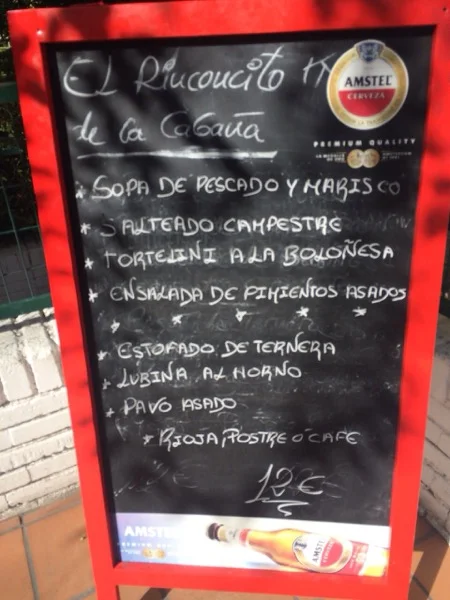 EL Rinconcito
de la Cabaña
AMSTEL
CERVEZA
PREMIUM QUALITY
* SOPA DE PESCADO Y MARISCO
* SALTEADO CAMPESTRE
* TORTELINI A LA BOLOÑESA
* ENSALADA DE PIMIENTOS ASADOS
* ESTOFADO DE TERNERA
* LUBINA AL HORNO
* PAVO ASADO
* RIOJA, POSTRE O CAFE
12 €
AMSTEL
AMSTEL